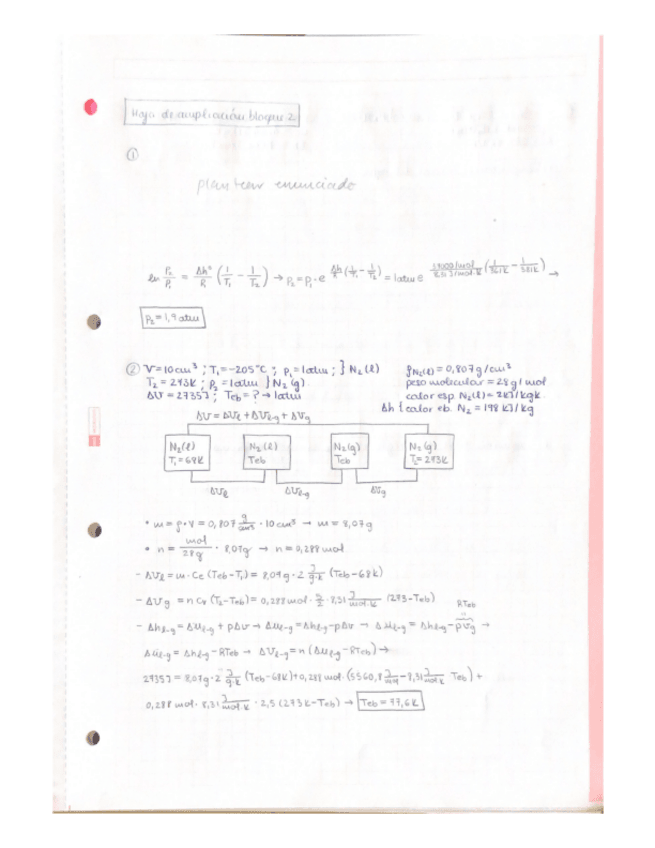 Hoja de ampliación bloque 2
①
plantear enunciado
ln P₂/P₁ = Δh°/R (1/T₁ − 1/T₂) → P₂ = P₁ · e^(Δh/R (1/T₁ − 1/T₂)) = 1atm e →
P₂ = 1,9 atm
② V = 10 cm³ ; T₁ = -205°C ; p₁ = 1atm ; } N₂ (l)
T₂ = 293K ; p₂ = 1atm } N₂ (g)
ΔU = 2735J ; Teb = ? → 1atm
ρN₂(l) = 0,807 g/cm³
peso molecular = 28 g/mol
calor esp N₂(l) = 2kJ/kgK
Δh { calor eb. N₂ = 198 kJ/kg
ΔU = ΔUl + ΔUl-g + ΔUg
N₂(l) T₁ = 68K
N₂(l) Teb
N₂(g) Teb
N₂(g) T₂ = 293K
ΔUl ΔUl-g ΔUg
• m = ρ · V = 0,807 g/cm³ · 10 cm³ → m = 8,07g
• n = mol/28g · 8,07g → n = 0,288 mol
- ΔUl = m · Ce (Teb - T₁) = 8,07g · 2 J/g·K (Teb - 68K)
- ΔUg = n Cv (T₂ - Teb) = 0,288 mol · 5/2 · 8,31 J/mol·K (293 - Teb)
RTeb
- Δhl-g = Δul-g + pΔv → Δul-g = Δhl-g - pΔv → Δul-g = Δhl-g - pvg →
Δul-g = Δhl-g - RTeb → ΔUl-g = n (Δul-g - RTeb) →
2735J = 8,07g · 2 J/g·K (Teb - 68K) + 0,288 mol · (5560,8 J/mol - 8,31 J/mol·K Teb) +
0,288 mol · 8,31 J/mol·K · 2,5 (273K - Teb) → Teb = 77,6K